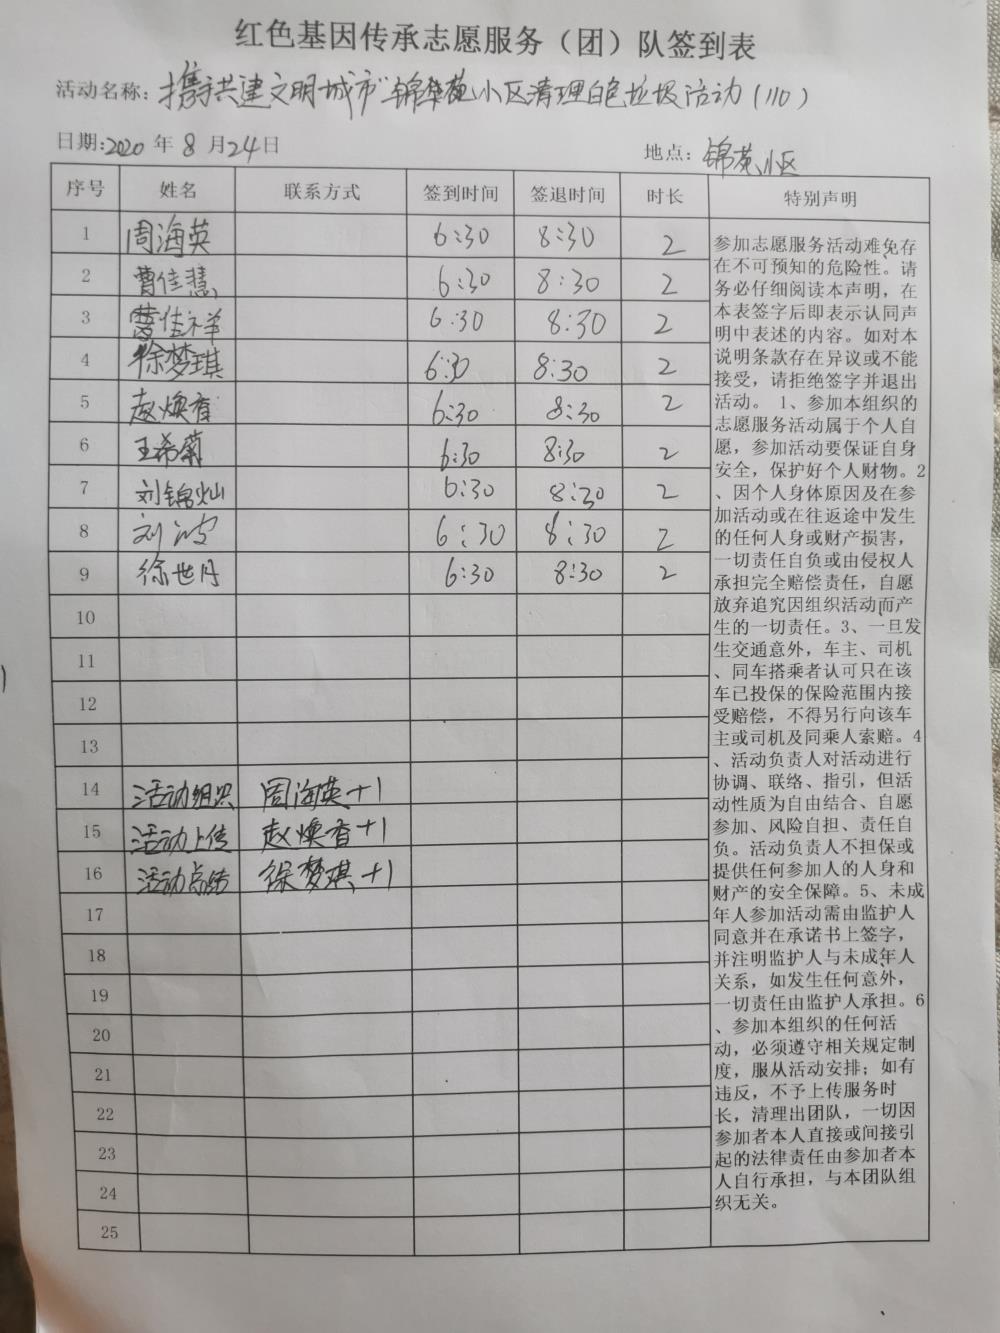 红色基因传承志愿服务（团）队签到表
活动名称：携手共建文明城市"锦华苑小区清理白色垃圾活动（110）
日期：2020 年 8 月 24 日
地点：锦苑小区
序号 姓名 联系方式 签到时间 签退时间 时长 特别声明
1 周海英 6:30 8:30 2
2 曹佳慧 6:30 8:30 2
3 曹佳祥 6:30 8:30 2
4 徐梦琪 6:30 8:30 2
5 赵焕香 6:30 8:30 2
6 王希菊 6:30 8:30 2
7 刘锦灿 6:30 8:30 2
8 刘波 6:30 8:30 2
9 徐世丹 6:30 8:30 2
10
11
12
13
14 活动组织 周海英+1
15 活动上传 赵焕香+1
16 活动总结 徐梦琪+1
17
18
19
20
21
22
23
24
25
参加志愿服务活动难免存
在不可预知的危险性。请
务必仔细阅读本声明，在
本表签字后即表示认同声
明中表述的内容。如对本
说明条款存在异议或不能
接受，请拒绝签字并退出
活动。 1、参加本组织的
志愿服务活动属于个人自
愿，参加活动要保证自身
安全，保护好个人财物。2
、因个人身体原因及在参
加活动或在往返途中发生
的任何人身或财产损害，
一切责任自负或由侵权人
承担完全赔偿责任，自愿
放弃追究因组织活动而产
生的一切责任。3、一旦发
生交通意外，车主、司机
、同车搭乘者认可只在该
车已投保的保险范围内接
受赔偿，不得另行向该车
主或司机及同乘人索赔。4
、活动负责人对活动进行
协调、联络、指引，但活
动性质为自由结合、自愿
参加、风险自担、责任自
负。活动负责人不担保或
提供任何参加人的人身和
财产的安全保障。5、未成
年人参加活动需由监护人
同意并在承诺书上签字，
并注明监护人与未成年人
关系，如发生任何意外，
一切责任由监护人承担。6
、参加本组织的任何活
动，必须遵守相关规定制
度，服从活动安排；如有
违反，不予上传服务时
长，清理出团队，一切因
参加者本人直接或间接引
起的法律责任由参加者本
人自行承担，与本团队组
织无关。